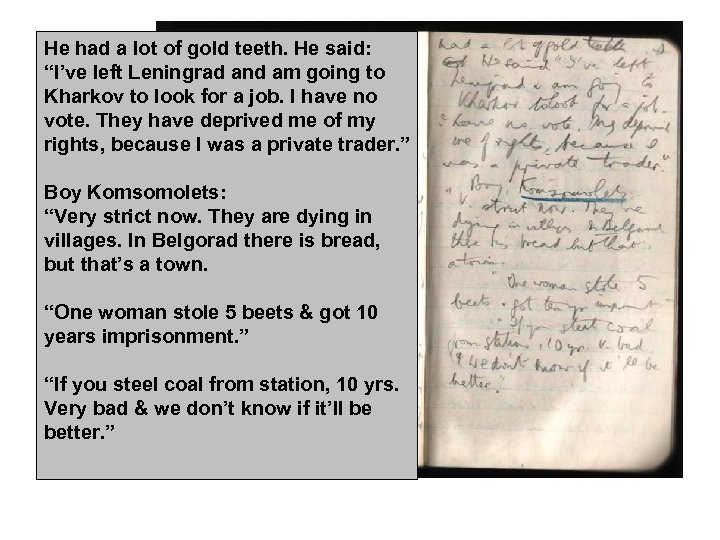 He had a lot of gold teeth. He said:
“I’ve left Leningrad and am going to
Kharkov to look for a job. I have no
vote. They have deprived me of my
rights, because I was a private trader.”
Boy Komsomolets:
“Very strict now. They are dying in
villages. In Belgorad there is bread,
but that’s a town.
“One woman stole 5 beets & got 10
years imprisonment.”
“If you steel coal from station, 10 yrs.
Very bad & we don’t know if it’ll be
better.”
had a lot of gold teeth
He said "I've left
Leningrad & am going to
Kharkov to look for a job.
I have no vote. They deprived
me of rights, because I
was a private trader."
Boy, Komsomolets.
"V. strict now. They are
dying in villages. In Belgorad
there is bread but that
a town.
"One woman stole 5
beets & got ten yrs imprisonment
"If you steal coal
from station, 10 yrs. v. bad
& we don't know if it'll be
better."